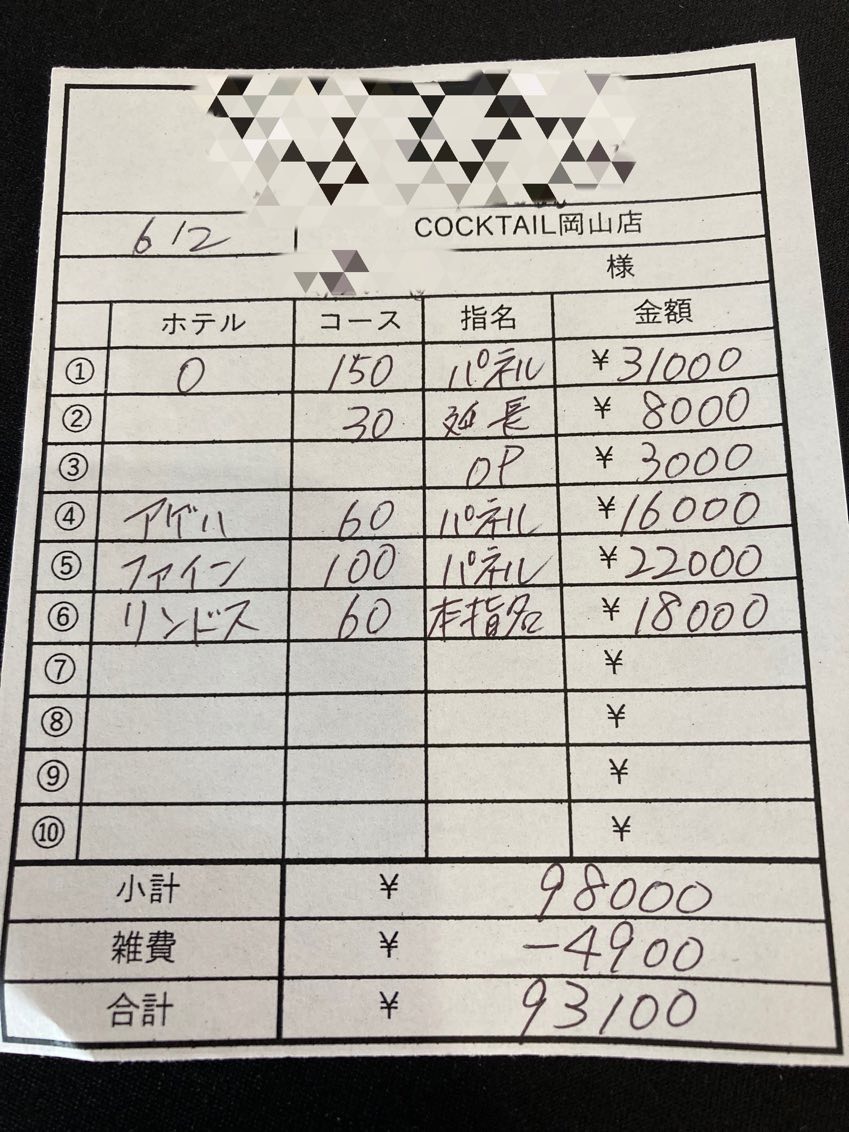 612 COCKTAIL岡山店
様
ホテル コース 指名 金額
① 0 150 パネル ¥31000
② 30 延長 ¥8000
③ OP ¥3000
④ アゲハ 60 パネル ¥16000
⑤ ファイン 100 パネル ¥22000
⑥ リンドス 60 本指名 ¥18000
⑦ ¥
⑧ ¥
⑨ ¥
⑩ ¥
小計 ¥ 98000
雑費 ¥ -4900
合計 ¥ 93100